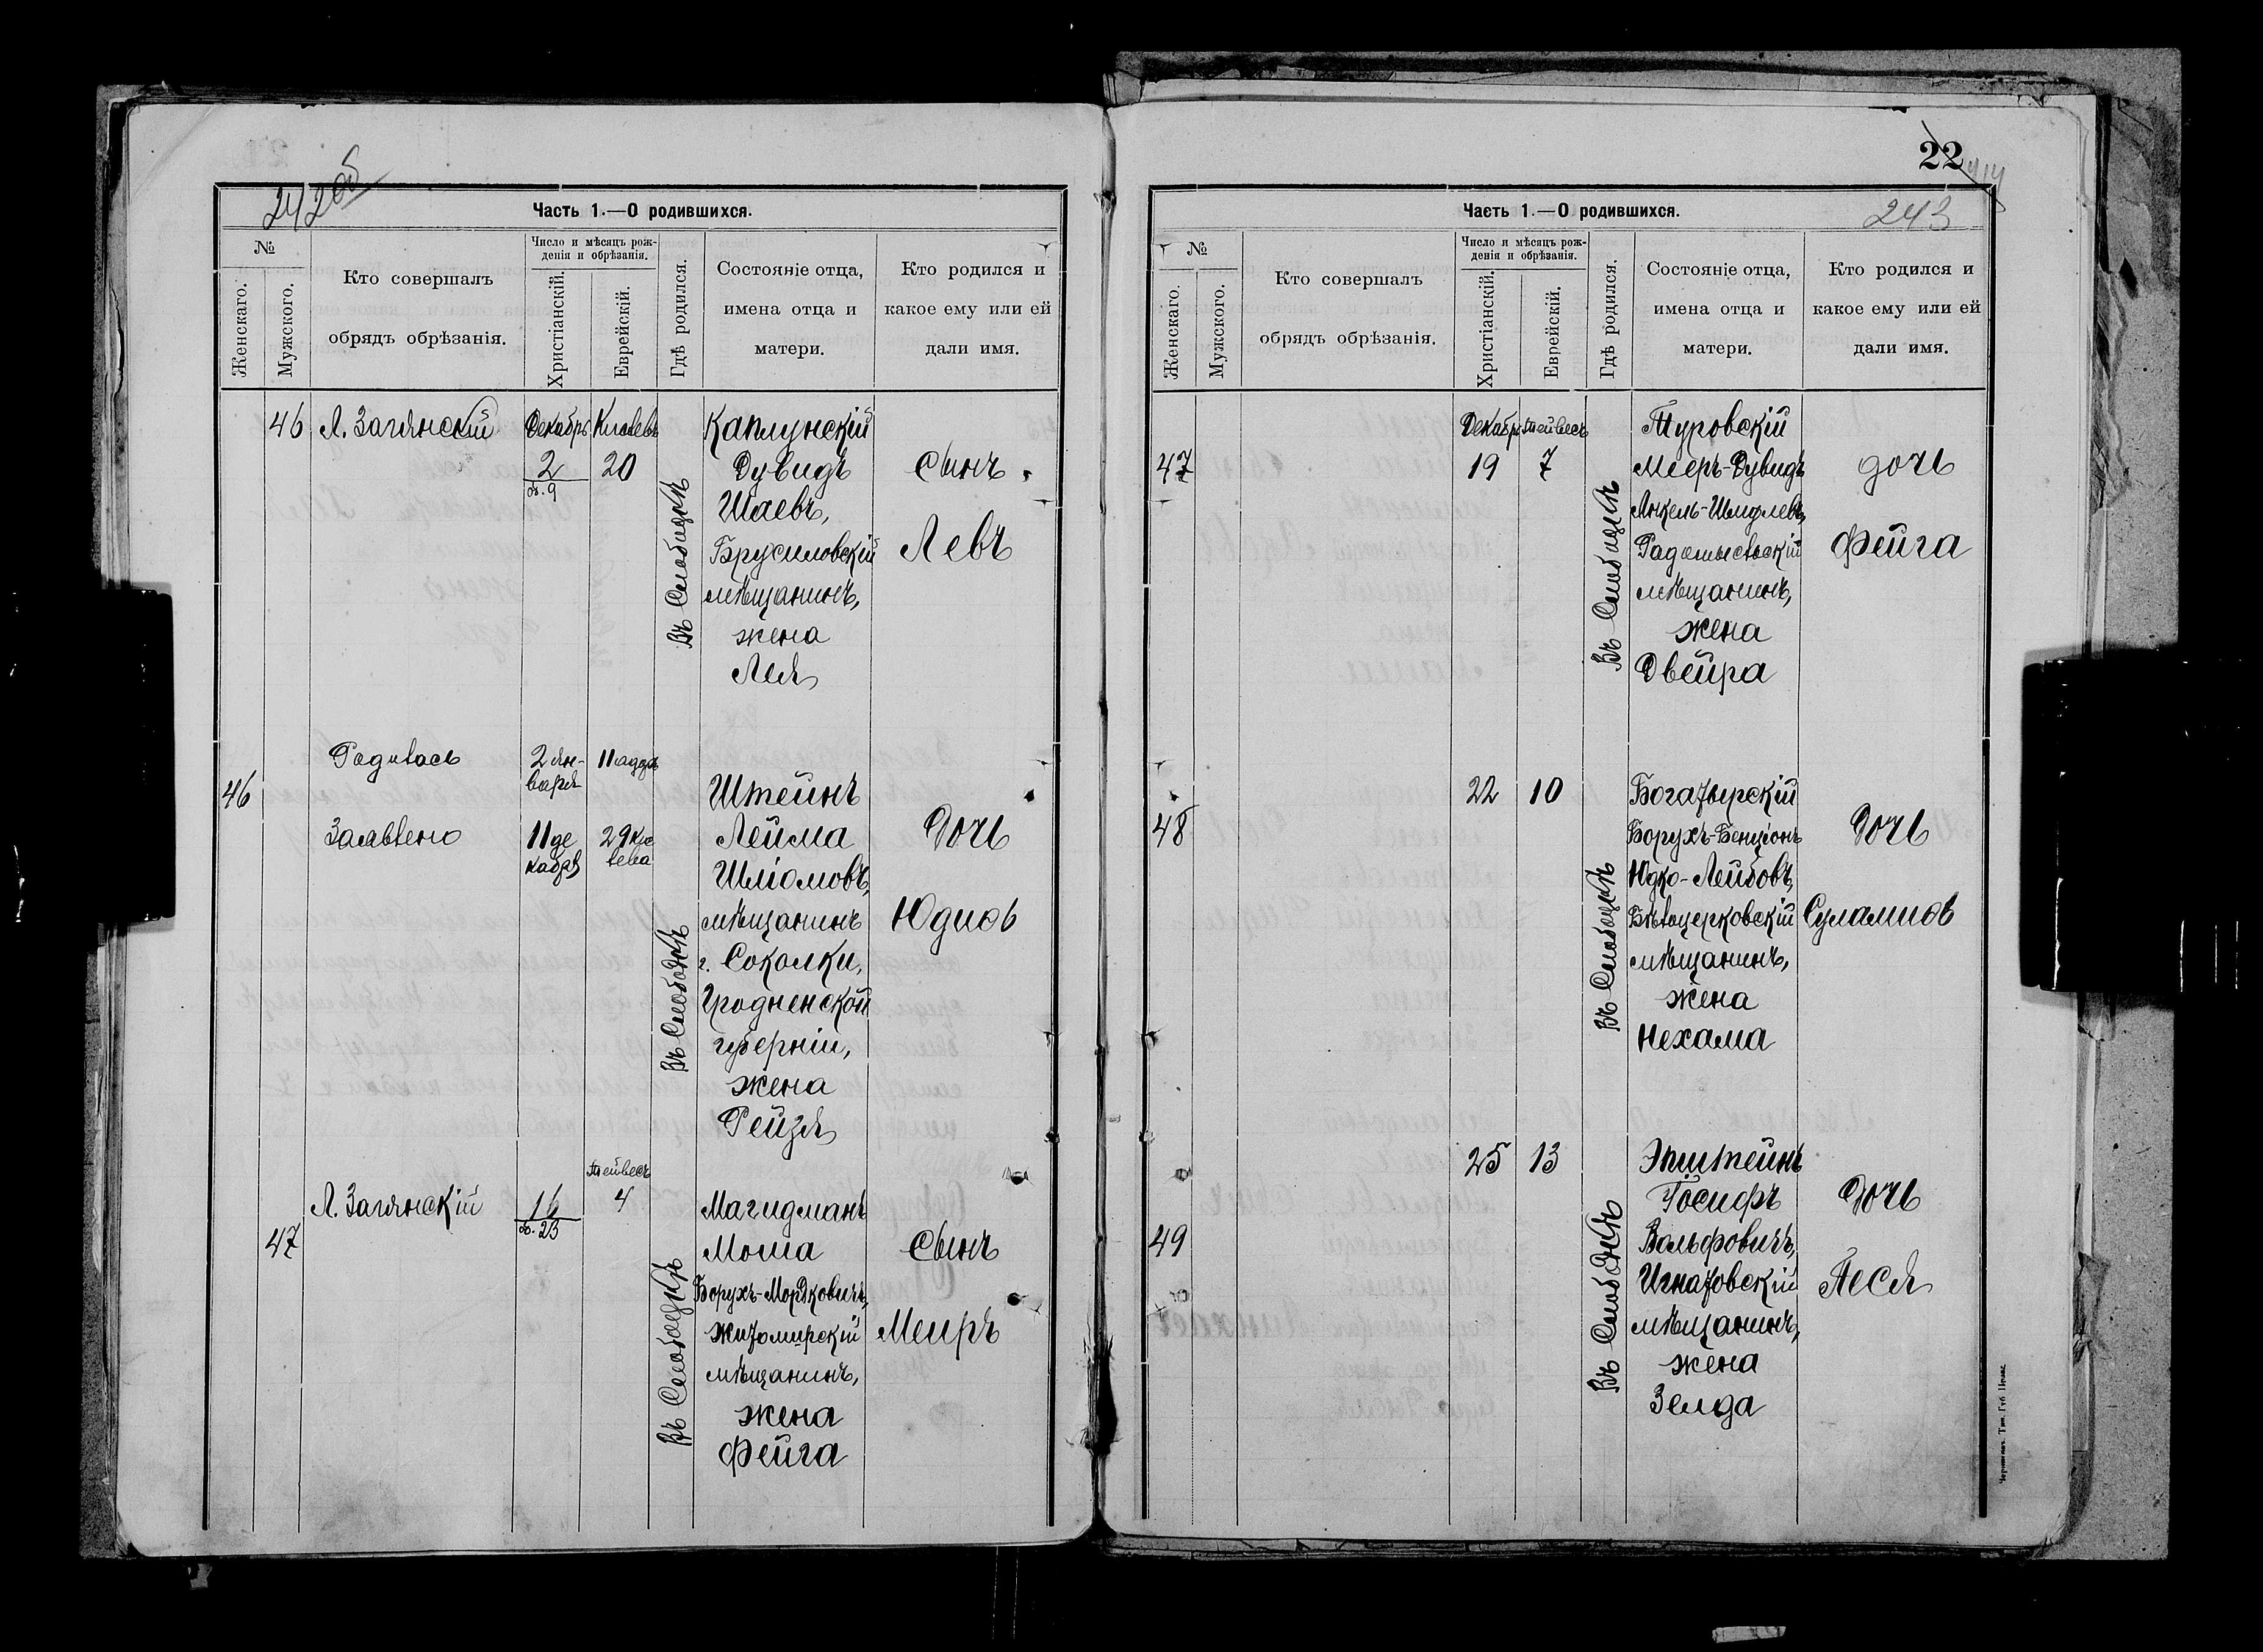 242 об
Часть 1.—О родившихся.
№
Женскаго.
Мужского.
Кто совершалъ
обрядъ обрѣзанія.
Число и мѣсяцъ рож-
денія и обрѣзанія.
Христіанскій.
Еврейскій.
Гдѣ родился.
Состояніе отца,
имена отца и
матери.
Кто родился и
какое ему или ей
дали имя.
46 Л. Заглянскій Декабрь Кислевъ Каплунскій
2 20 Дувидъ сынъ
об. 9
Въ Слободкѣ
Шаевъ,
Брусиловскій Левъ
мѣщанинъ,
жена
Лея
Родилась 2 Ян- 11 адда
варя
46 Штейнъ
Заявлено 11 де 29 кис Лейма Дочь
кабря лева
Шліомовъ,
мѣщанинъ Юдиѳь
Въ Слободкѣ
г. Соколки,
Гродненской
губерніи,
жена
Рейзя
Тейвесъ
Л. Заглянскій 16 4 Магидманъ
об. 23
47 Моша Сынъ
Въ Слободкѣ
Борухъ-Мордковичъ,
Житомирскій Меиръ
мѣщанинъ,
жена
Фейга
22
243
Часть 1.—О родившихся.
№
Женскаго.
Мужского.
Кто совершалъ
обрядъ обрѣзанія.
Число и мѣсяцъ рож-
денія и обрѣзанія.
Христіанскій.
Еврейскій.
Гдѣ родился.
Состояніе отца,
имена отца и
матери.
Кто родился и
какое ему или ей
дали имя.
Декабрь Тейвесъ Туровскій
47 19 7 Мееръ-Дувидъ дочь
Въ Слободкѣ
Янкель-Шмулевъ,
Радомысльскій Фейга
мѣщанинъ,
жена
Двейра
22 10 Богатырскій
48 Борухъ-Бенціонъ Дочь
Въ Слободкѣ
Юдко-Лейбовъ,
Бѣлоцерковскій Суламиѳь
мѣщанинъ,
жена
Нехама
25 13 Эпштейнъ
Іосифъ Дочь
49 Вольфовичъ,
Въ Слободкѣ
Игнатовскій Песя
мѣщанинъ,
жена
Зелда